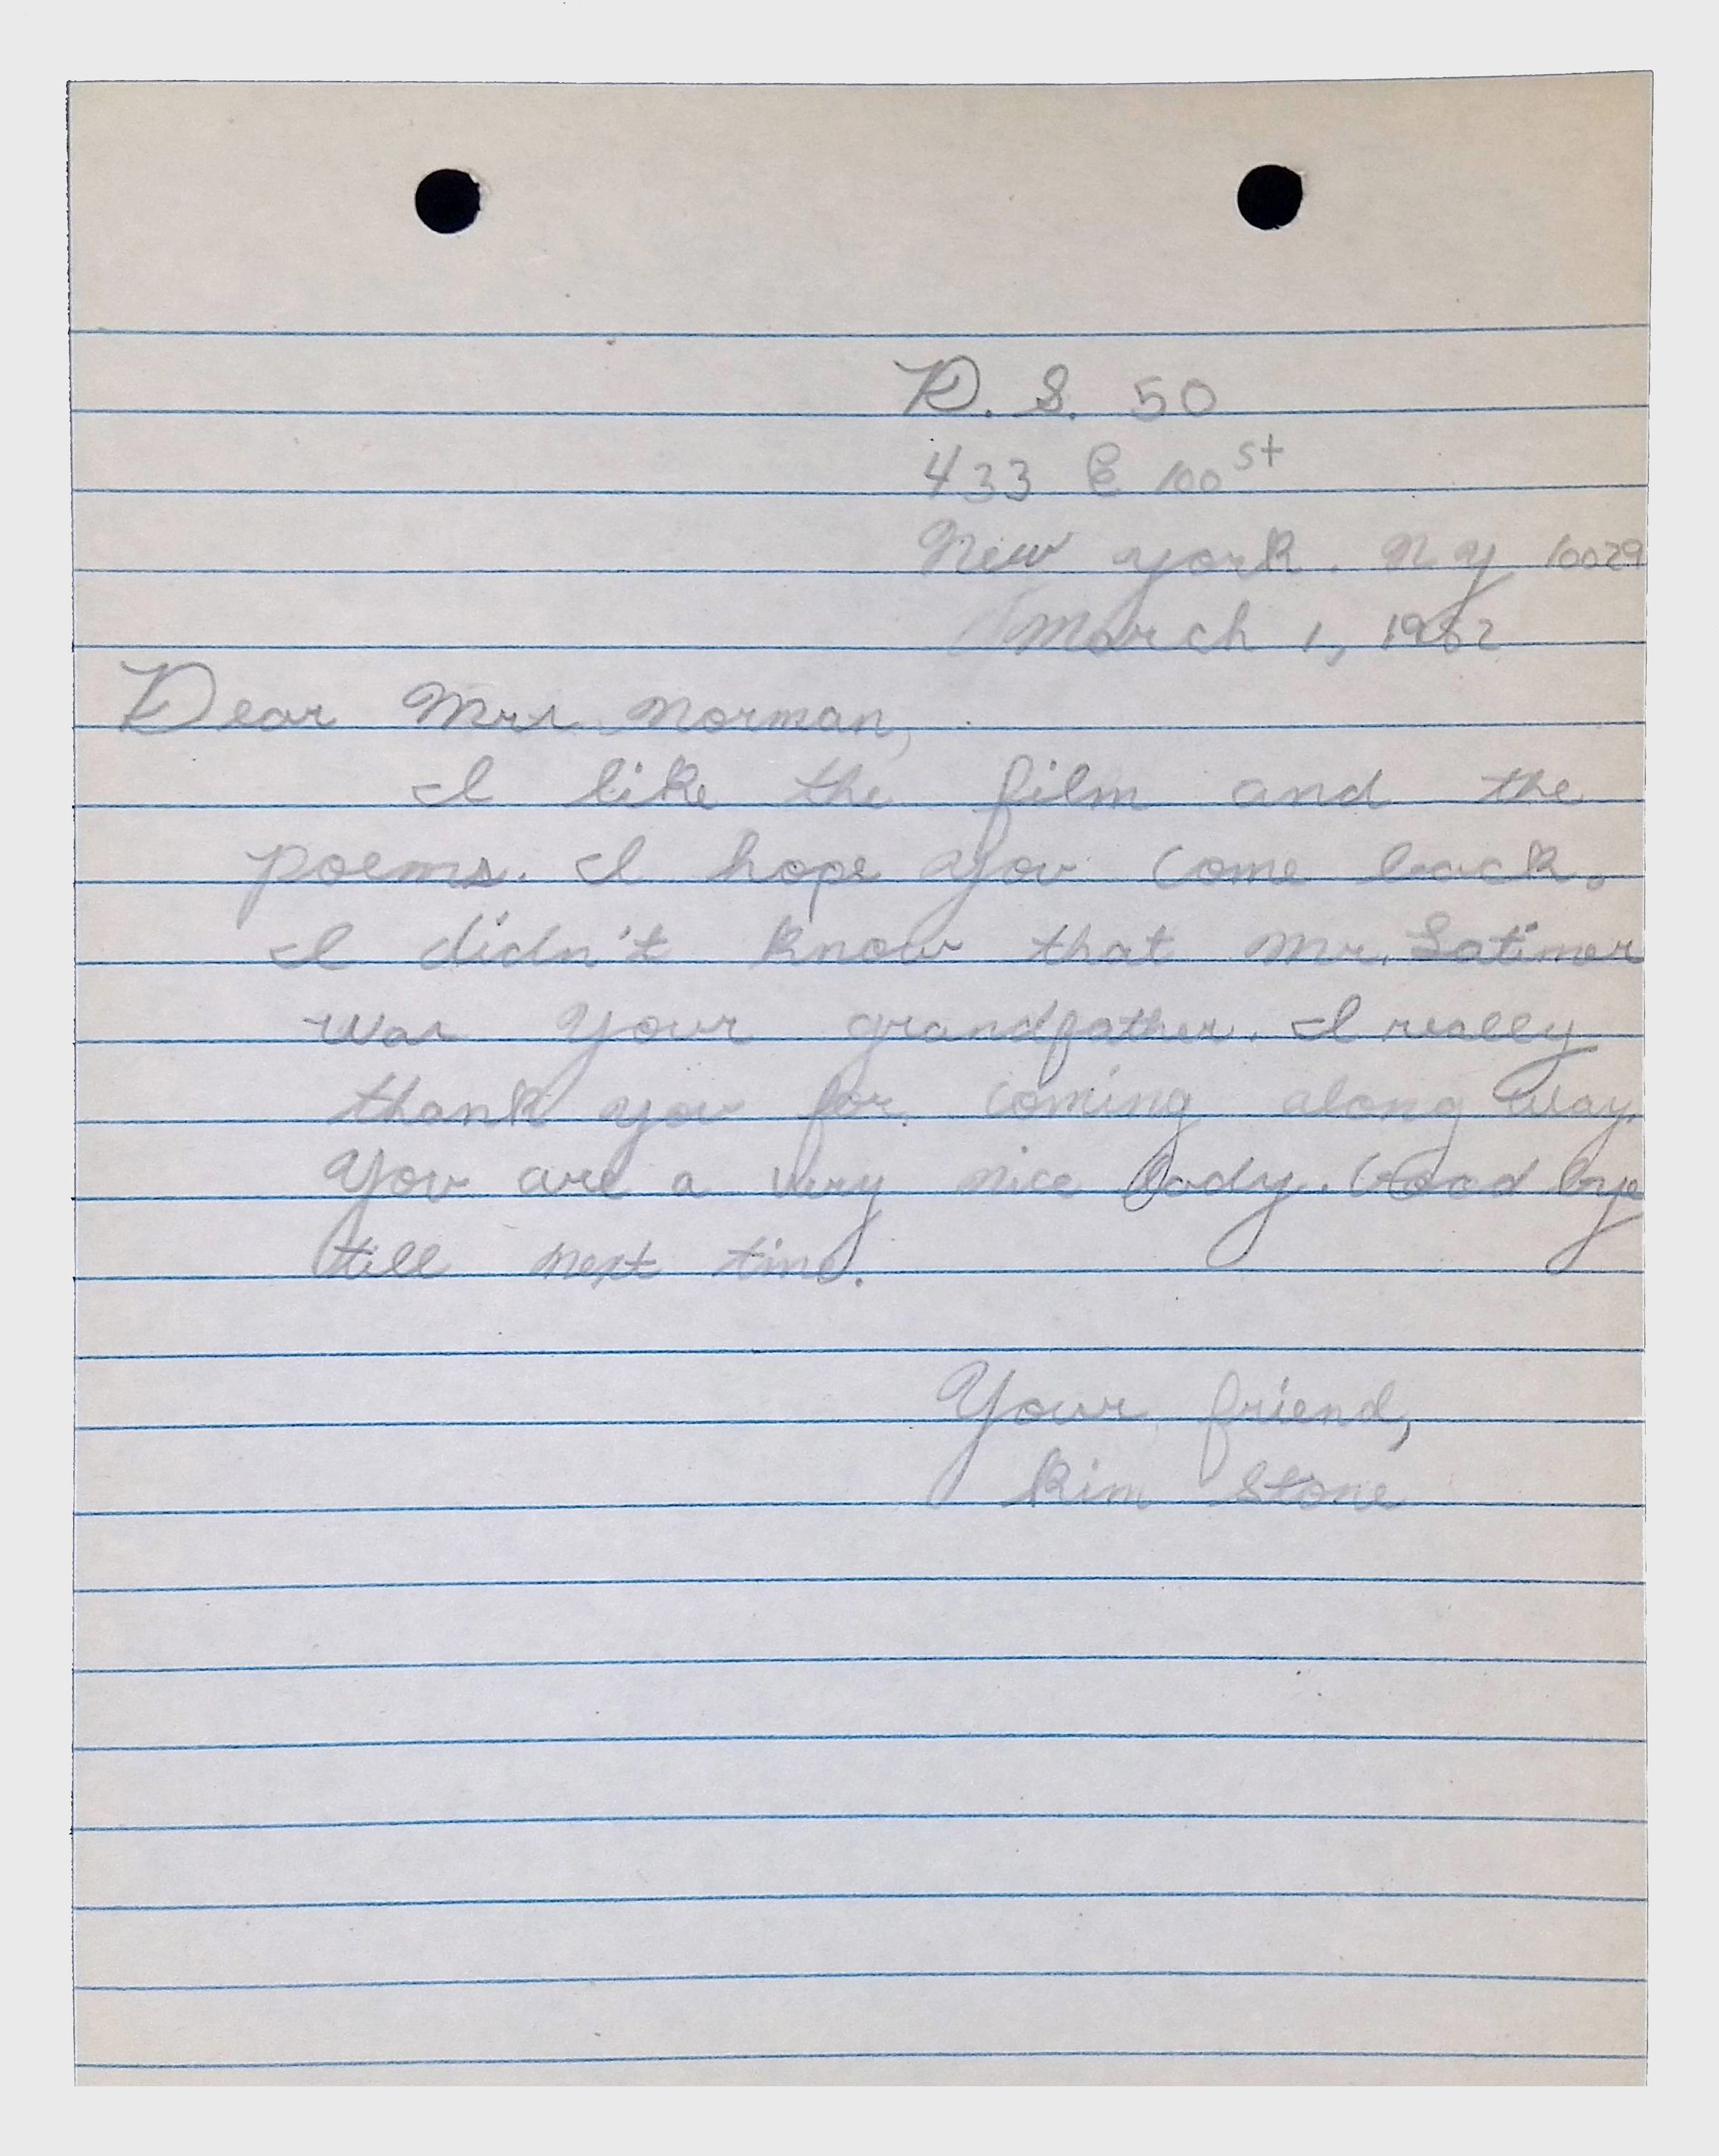 P. S. 50
433 E 100 st
New york. N y 10029
March 1, 1982
Dear Mrs. Norman,
I like the film and the
poems. I hope you come back.
I didn't know that Mr. Latimer
was your grandfather. I really
thank you for coming along way.
You are a very nice lady. Good bye
till next time.
Your friend,
Kim Stone